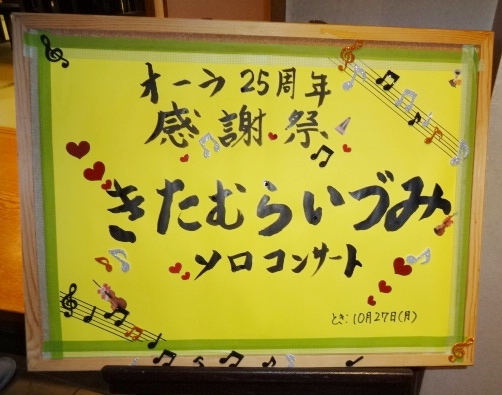 オーラ25周年
感謝祭
きたむらいづみ
ソロコンサート
とき:10月27日(月)